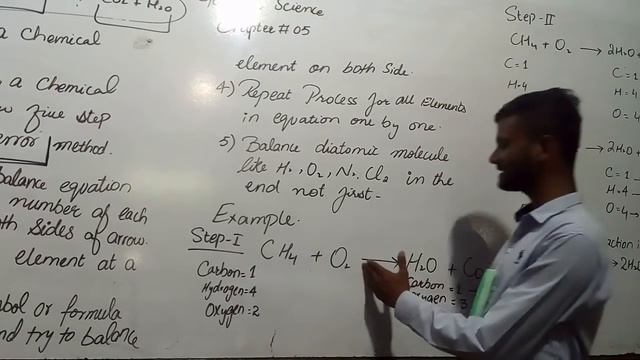 CO₂ + H₂O
Science
Chapter # 05
a Chemical
a Chemical
five step
error method.
Balance equation
number of each
sides of arrow.
element at a
symbol or formula
and try to balance
element on both Side.
4) Repeat Process for all Elements
in equation one by one.
5) Balance diatomic molecule
like H₂, O₂, N₂, Cl₂ in the
end not first-
Example.
Step-I
CH₄ + O₂ → H₂O + Co
Carbon=1
Hydrogen=4
Oxygen=2
Carbon = 1
Oxygen = 3
Step-II
CH₄ + O₂ → 2H₂O +
C=1
H=4
C=1
H=4
O=4
→ 2H₂O +
C=1
H=4
O=4